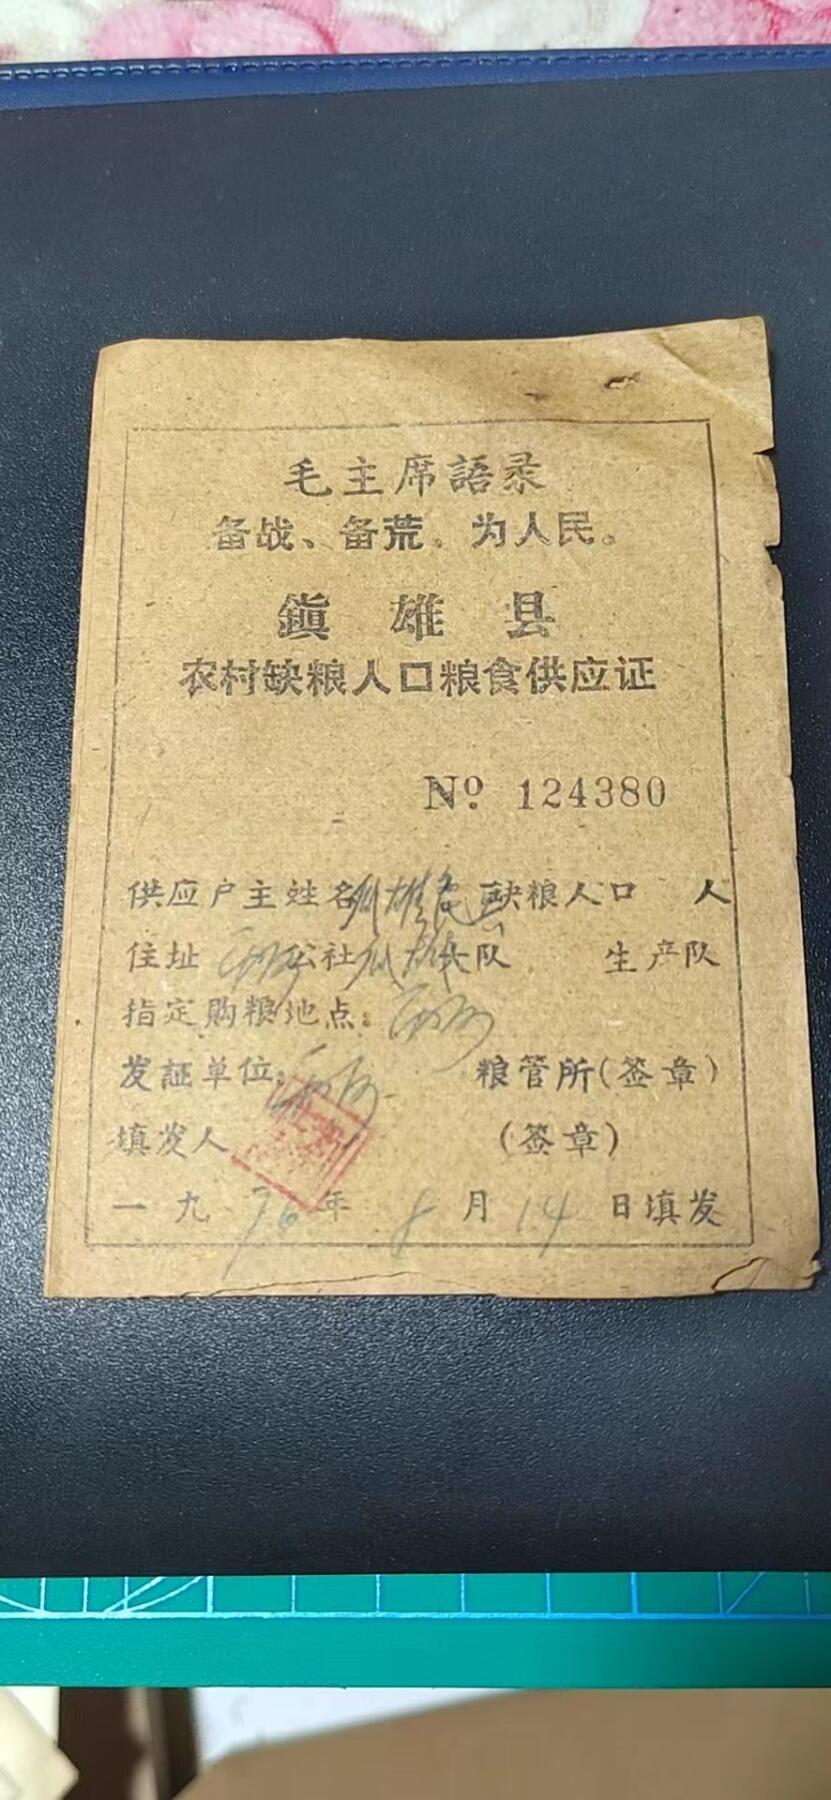 毛主席語录
备战、备荒、为人民。
鎮雄县
农村缺粮人口粮食供应证
Nº 124380
供应户主姓名 缺粮人口 人
住址 公社 大队 生产队
指定购粮地点:
发証单位: 粮管所(签章)
填发人 (签章)
一九76年8月14日填发